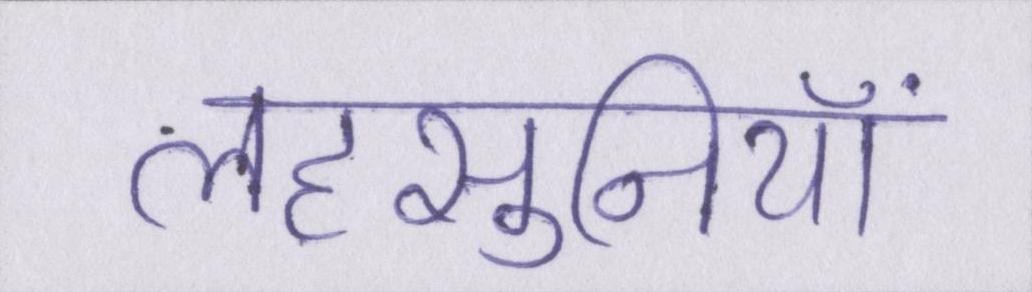 लहसुनियाँ